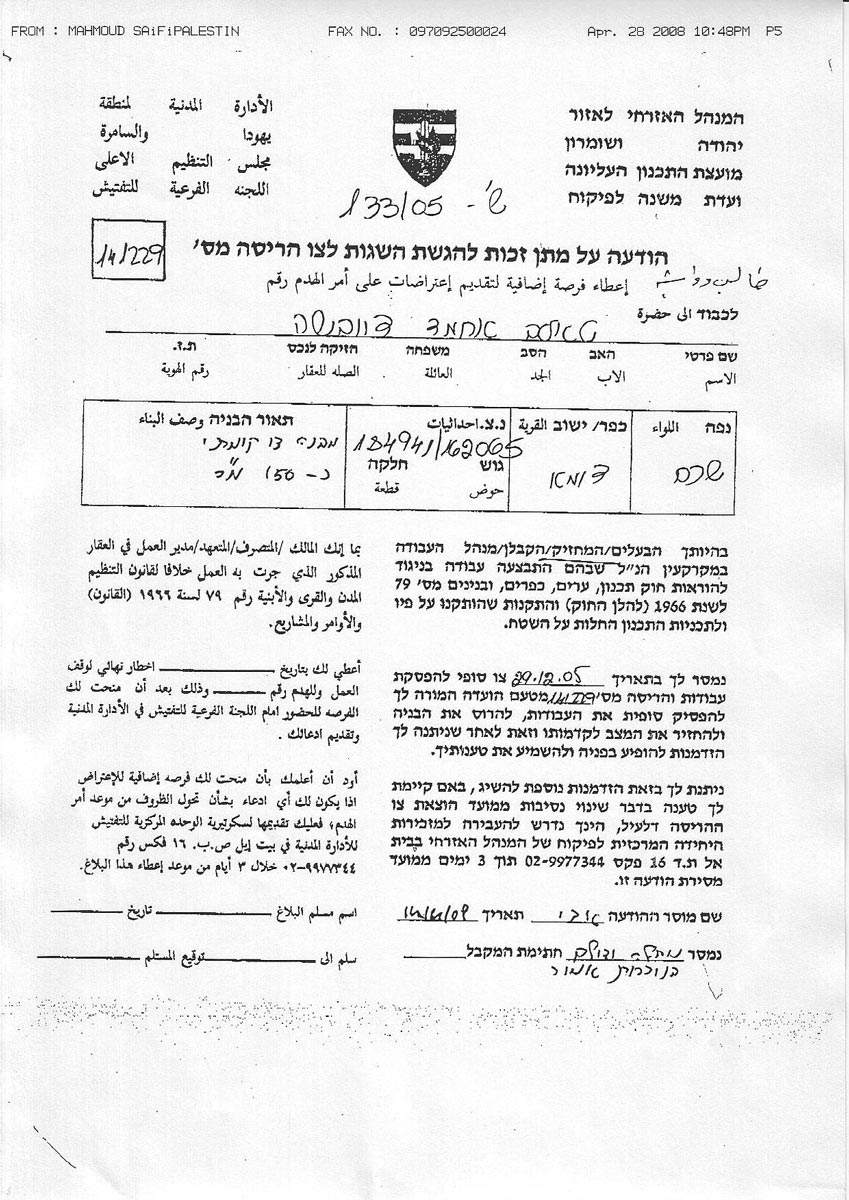 FROM : MAHMOUD SAiFiPALESTIN FAX NO. : 097092500024 Apr. 28 2008 10:48PM P5
המנהל האזרחי לאזור
יהודה ושומרון
מועצת התכנון העליונה
ועדת משנה לפיקוח
الأدارة المدنية لمنطقة
يهودا والسامرة
مجلس التنظيم الاعلى
اللجنه الفرعية للتفتيش
ש' - 133/05
הודעה על מתן זכות להגשת השגות לצו הריסה מס'
141229
إعطاء فرصة إضافية لتقديم إعتراضات على أمر الهدم رقم
לכבוד الى حضرة
טאלב אחמד דוובשה
שם פרטי האב הסב משפחה הזיקה לנכס ת.ז.
الاسم الاب الجد العائلة الصله للعقار رقم الهوية
נפה اللواء כפר/ ישוב القرية נ.צ. احداثيات תאור הבניה وصف البناء
שכם דומא 184941/162065 מבנה דו קומתי
גוש חלקה כ- 150 מ"ר
حوض قطعة
בהיותך הבעלים/המחזיק/הקבלן/מנהל העבודה
במקרקעין הנ"ל שבהם התבצעה עבודה בניגוד
להוראות חוק תכנון, ערים, כפרים, ובנינים מס' 79
לשנת 1966 (להלן החוק) והתקנות שהותקנו על פיו
ולתכניות התכנון החלות על השטח.
بما إنك المالك /المتصرف/المتعهد/مدير العمل في العقار
المذكور الذي جرت به العمل خلافا لقانون التنظيم
المدن والقرى والأبنية رقم ٧٩ لسنة ١٩٦٦ (القانون)
والأوامر والمشاريع.
נמסר לך בתאריך 29.12.05 צו סופי להפסקת
עבודות והריסה מס' מטעם הועדה המורה לך
להפסיק סופית את העבודות, להרוס את הבניה
ולהחזיר את המצב לקדמותו וזאת לאחר שניתנה לך
הזדמנות להופיע בפניה ולהשמיע את טענותיך.
أعطي لك بتاريخ اخطار نهائي لوقف
العمل وللهدم رقم وذلك بعد أن منحت لك
الفرصه للحضور امام اللجنة الفرعية للتفتيش في الأدارة المدنية
وتقديم ادعائك .
ניתנת לך בזאת הזדמנות נוספת להשיג, באם קיימת
לך טענה בדבר שינוי נסיבות ממועד הוצאת צו
ההריסה דלעיל, הינך נדרש להעבירה למזכירות
היחידה המרכזית לפיקוח של המנהל האזרחי בבית
אל ת.ד 16 פקס 02-9977344 תוך 3 ימים ממועד
מסירת הודעה זו.
أود أن أعلمك بأن منحت لك فرصه إضافية للإعتراض
اذا يكون لك أي ادعاء بشأن تحول الظروف من موعد أمر
الهدم؛ فعليك تقديمها لسكرتيرية الوحده المركزية للتفتيش
للأدارة المدنية في بيت إيل ص.ب. ١٦ فكس رقم
٠٢-٩٩٧٧٣٤٤ خلال ٣ أيام من موعد إعطاء هذا البلاغ.
שם מוסר ההודעה תאריך
اسم مسلم البلاغ تاريخ
נמסר חתימת המקבל
سلم الى توقيع المستلم